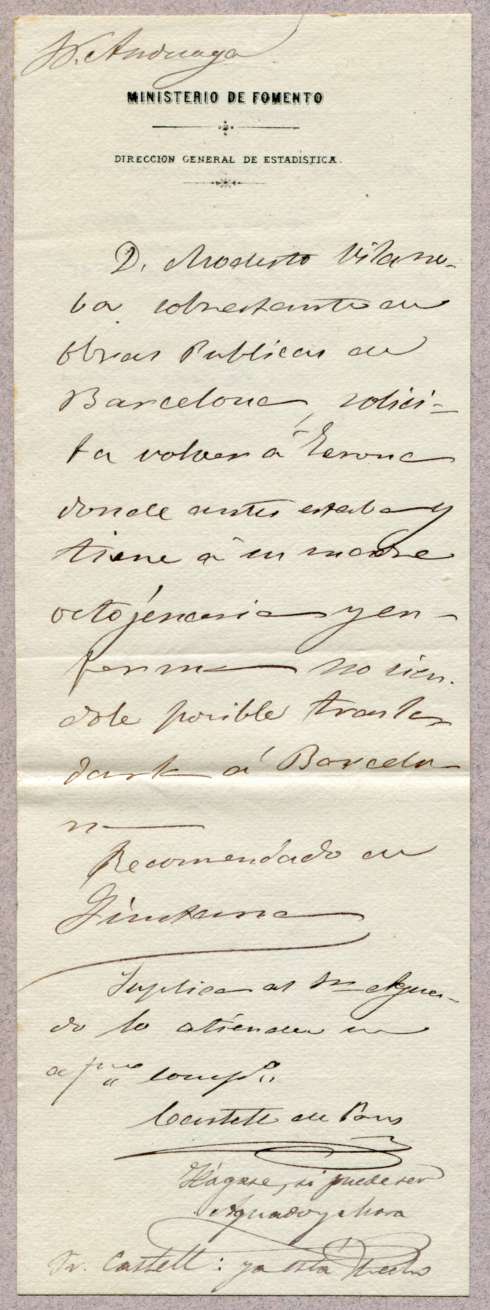 Sr. Anduaga
MINISTERIO DE FOMENTO
DIRECCION GENERAL DE ESTADÍSTICA.
D. Modesto Vilano-
ba sobrestante de
Obras Publicas de
Barcelona, solici-
ta volver á Gerona
donde antes estaba y
tiene á su madre
octojenaria y en-
ferma no sien-
dole posible trasla
darla á Barcelo-
na
Recomendado de
Suplica al Sr. Agua-
do lo atienda su
a compo.
Castell de Pons
Hágase, si puede ser
Aguado y Mora
Sr. Castell: ya está hecho